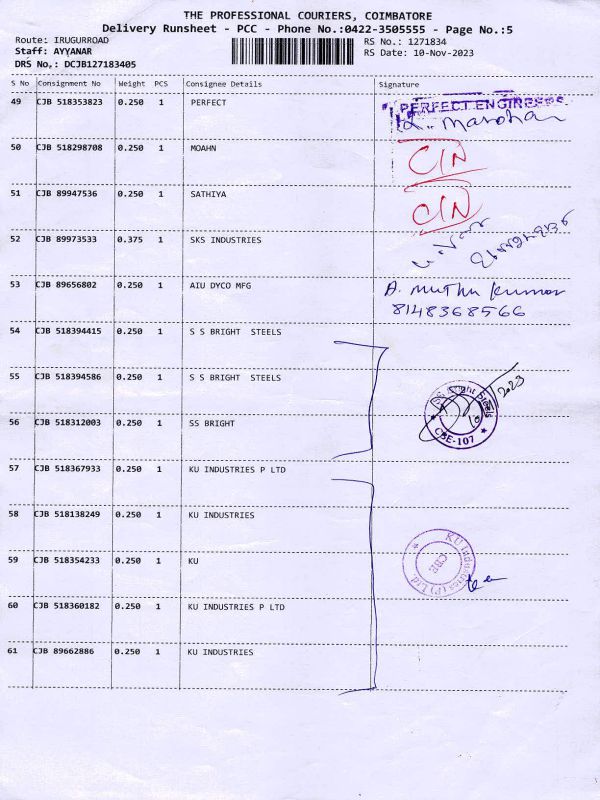 THE PROFESSIONAL COURIERS, COIMBATORE
Delivery Runsheet - PCC - Phone No.:0422-3505555 - Page No.:5
Route: IRUGURROAD RS No.: 1271834
Staff: AYYANAR RS Date: 10-Nov-2023
DRS No.: DCJB127183405
S No Consignment No Weight PCS Consignee Details Signature
49 CJB 518353823 0.250 1 PERFECT PERFECT ENGINEERS
K. Manohar
50 CJB 518298708 0.250 1 MOAHN C/N
51 CJB 89947536 0.250 1 SATHIYA C/N
52 CJB 89973533 0.375 1 SKS INDUSTRIES
53 CJB 89656802 0.250 1 AIU DYCO MFG A. Muthu Kumar
8148368566
54 CJB 518394415 0.250 1 S S BRIGHT STEELS
55 CJB 518394586 0.250 1 S S BRIGHT STEELS
56 CJB 518312003 0.250 1 SS BRIGHT
SS Bright Steels
CBE-107
57 CJB 518367933 0.250 1 KU INDUSTRIES P LTD
58 CJB 518138249 0.250 1 KU INDUSTRIES
59 CJB 518354233 0.250 1 KU
KU Industries (P) Ltd.
CBE
60 CJB 518360182 0.250 1 KU INDUSTRIES P LTD
61 CJB 89662886 0.250 1 KU INDUSTRIES